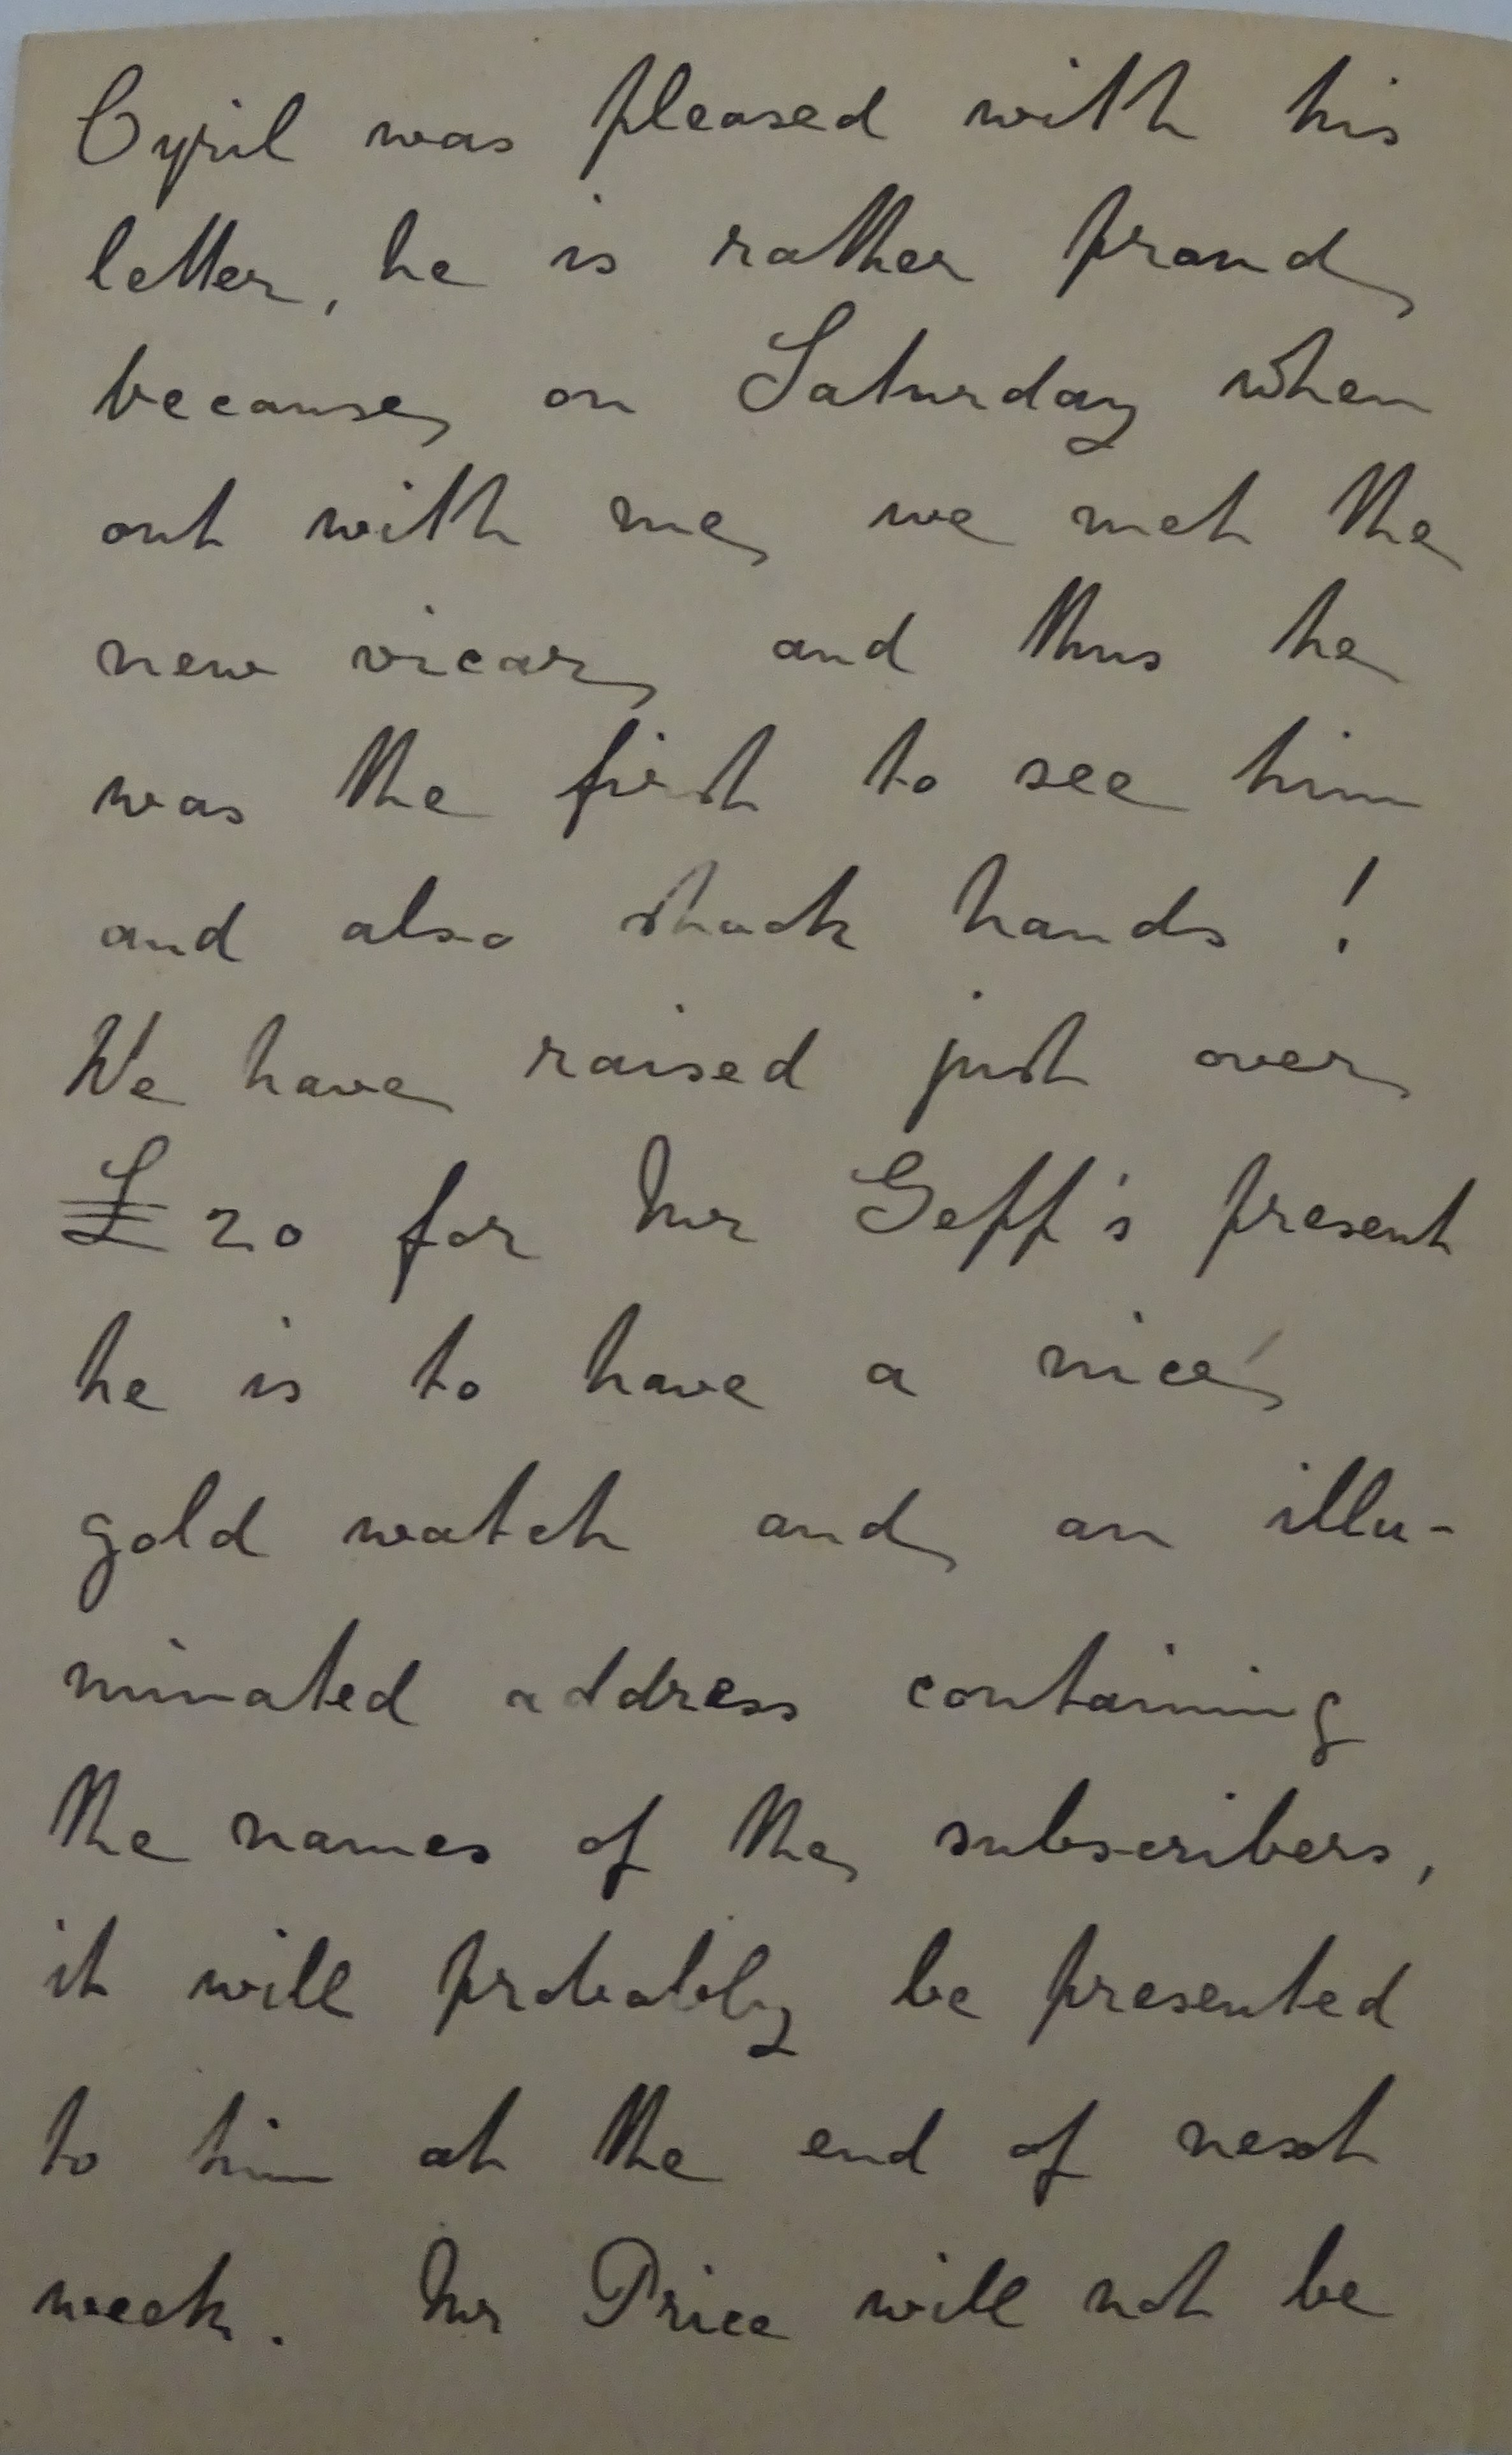 Cyril was pleased with his
letter, he is rather proud
because on Saturday when
out with me we met the
new vicar and thus he
was the first to see him
and also shook hands !
We have raised just over
£20 for Mr Geff's present
he is to have a nice
gold watch and an illu-
minated address containing
the names of the subscribers,
it will probably be presented
to him at the end of next
week. Mr Price will not be